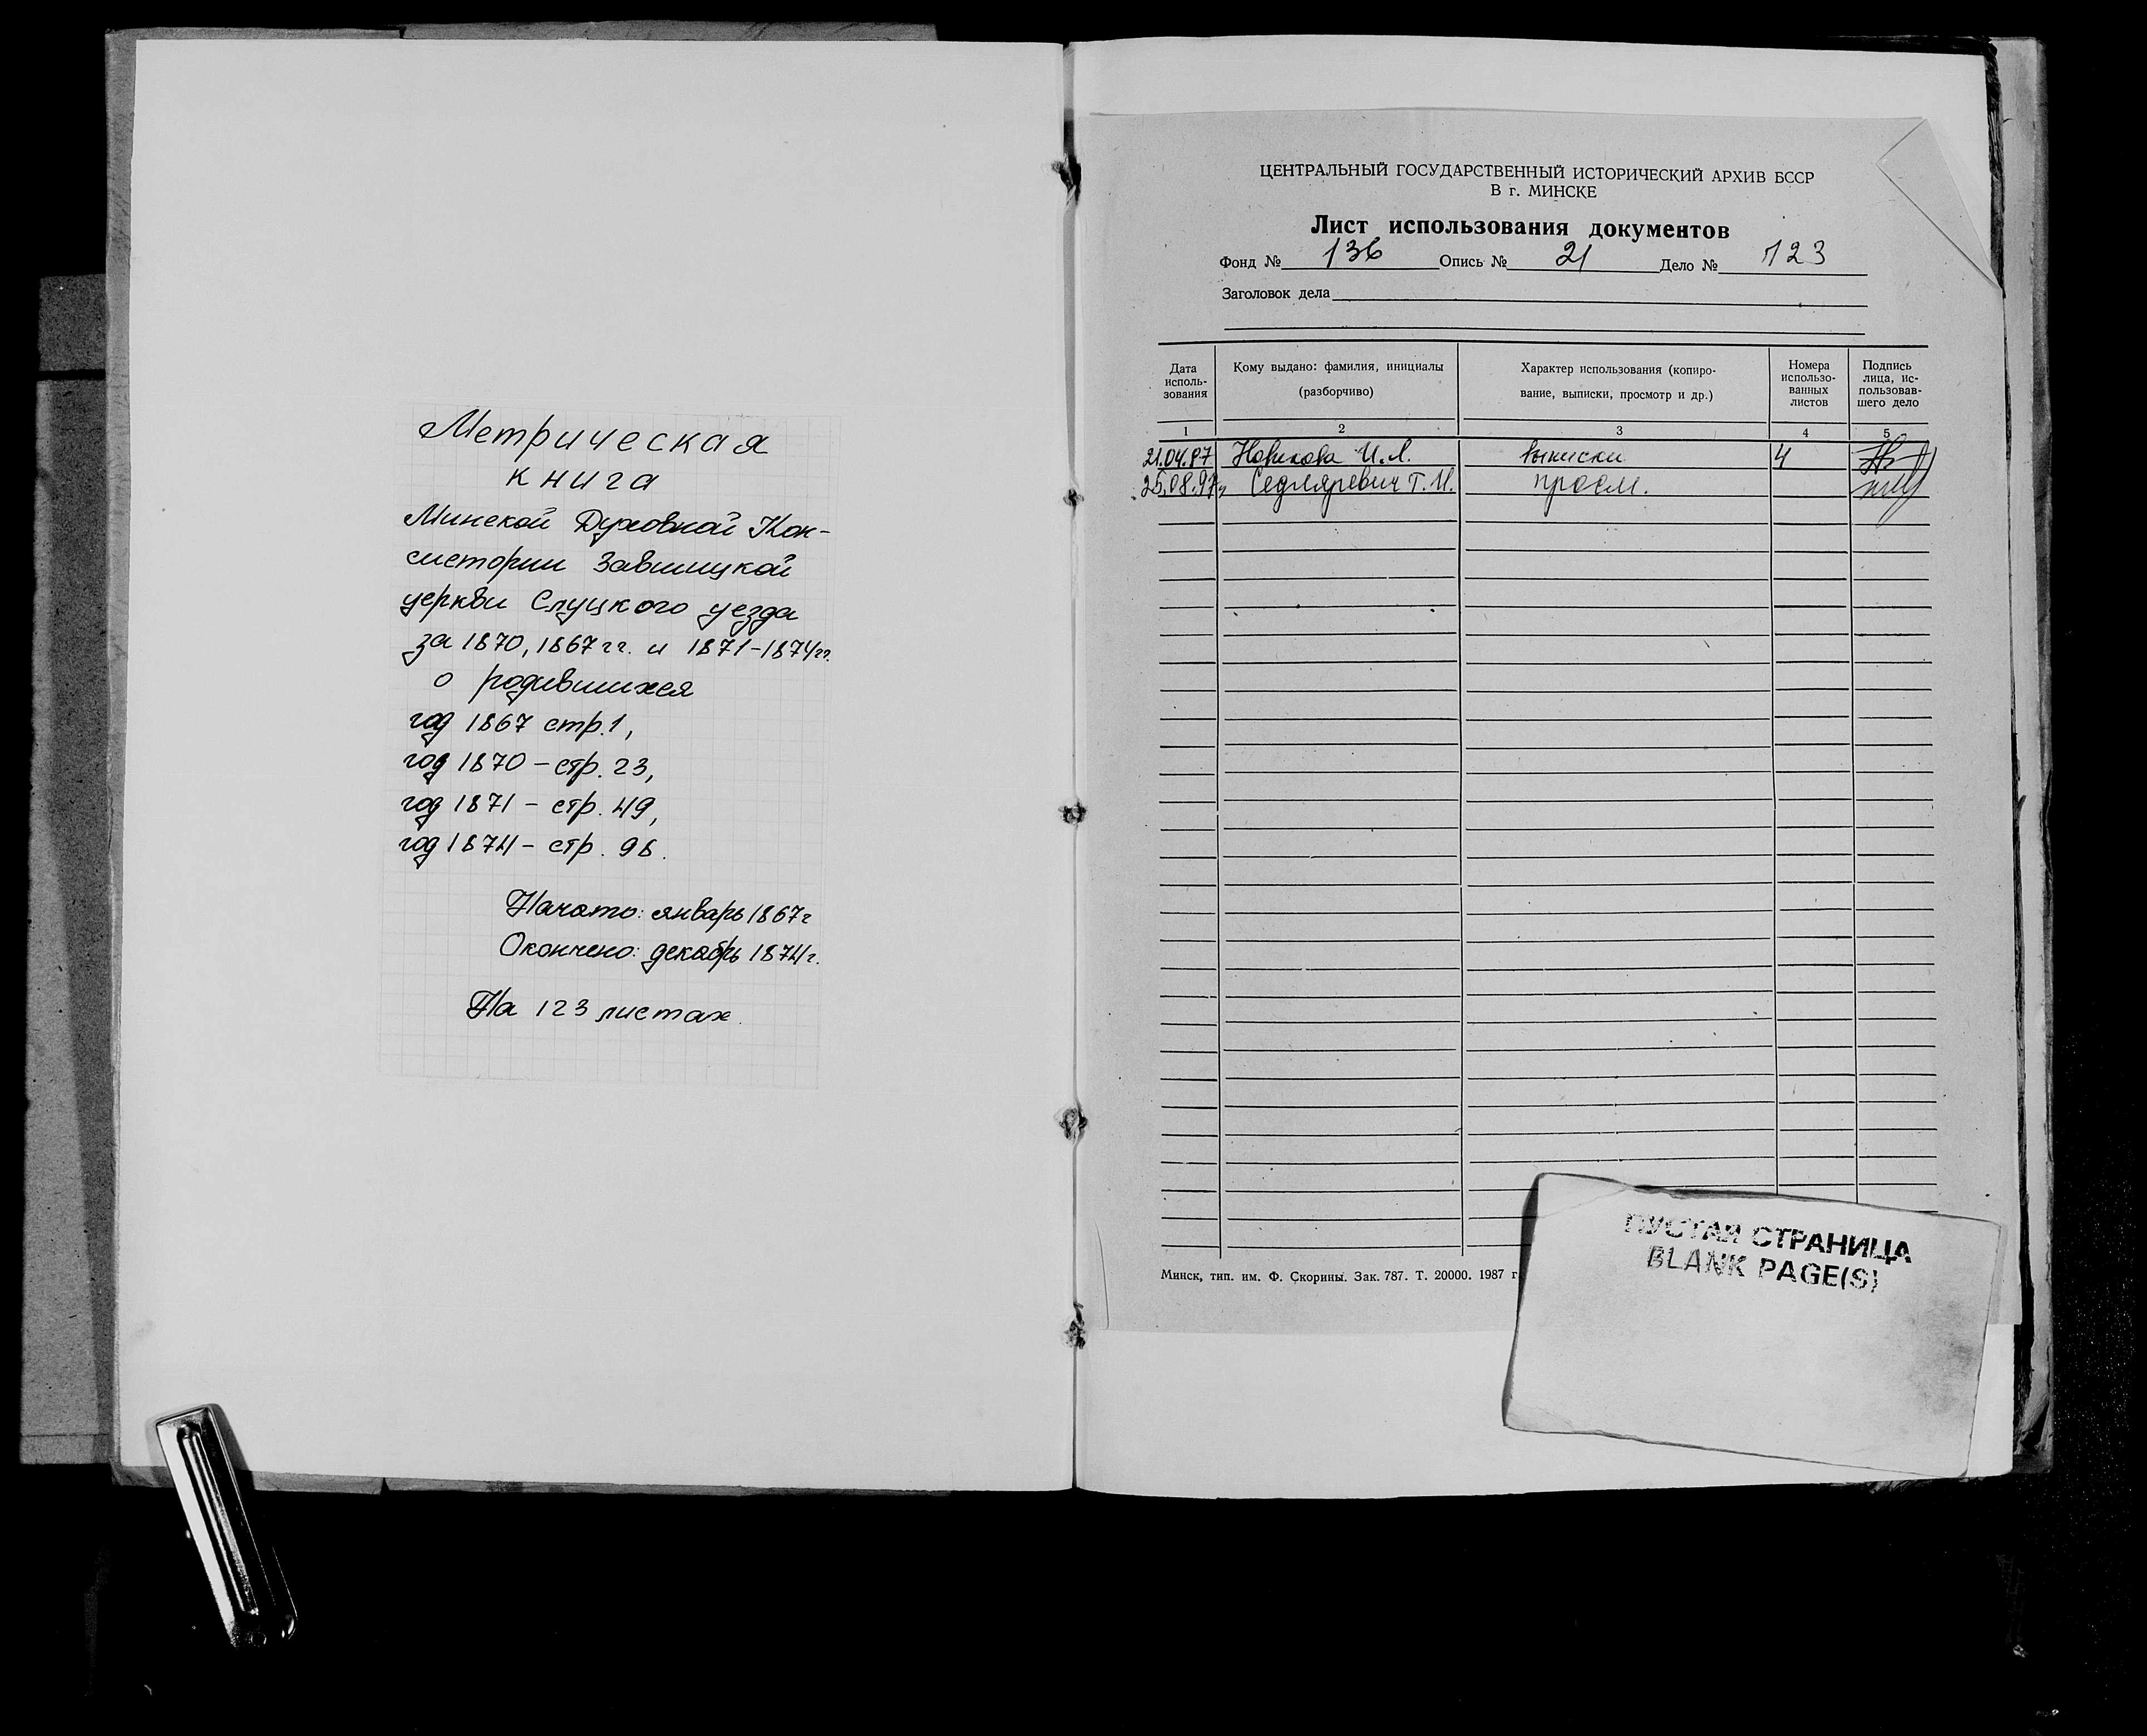 Метрическая
книга
Минской Духовной Кон-
систории Завшицкой
церкви Слуцкого уезда
за 1870, 1867 гг. и 1871-1874 гг.
о родившихся
год 1867 стр. 1,
год 1870 - стр. 23,
год 1871 - стр. 49,
год 1874 - стр. 98.
Начато: январь 1867 г
Окончено: декабрь 1874 г.
На 123 листах.
ЦЕНТРАЛЬНЫЙ ГОСУДАРСТВЕННЫЙ ИСТОРИЧЕСКИЙ АРХИВ БССР
В г. МИНСКЕ
Лист использования документов
Фонд № 136 Опись № 21 Дело № 123
Заголовок дела
Дата исполь- зования
Кому выдано: фамилия, инициалы (разборчиво)
Характер использования (копиро- вание, выписки, просмотр и др.)
Номера использо- ванных листов
Подпись лица, ис- пользовав- шего дело
1 2 3 4 5
21.04.97 Новикова И.Л. выписки 4
25.08.97 Седляревич Т.И. просм.
Минск, тип. им. Ф. Скорины. Зак. 787. Т. 20000. 1987 г
ПУСТАЯ СТРАНИЦА
BLANK PAGE(S)